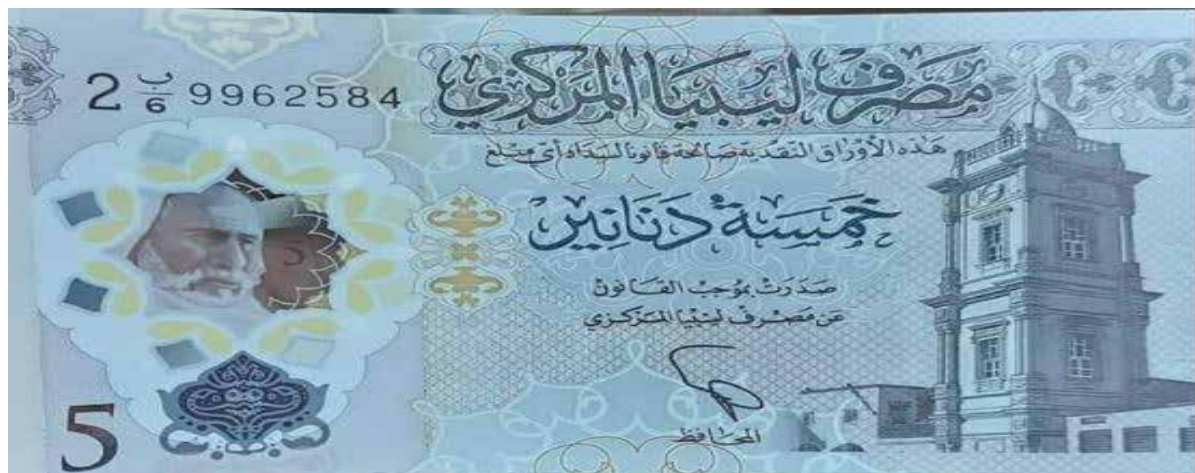 مصرف ليبيا المركزي
2 ب/6 9962584
هذه الأوراق النقدية صالحة قانونا لسداد أي مبلغ
خمسة دنانير
صدرت بموجب القانون
عن مصرف ليبيا المركزي
5
المحافظ
5